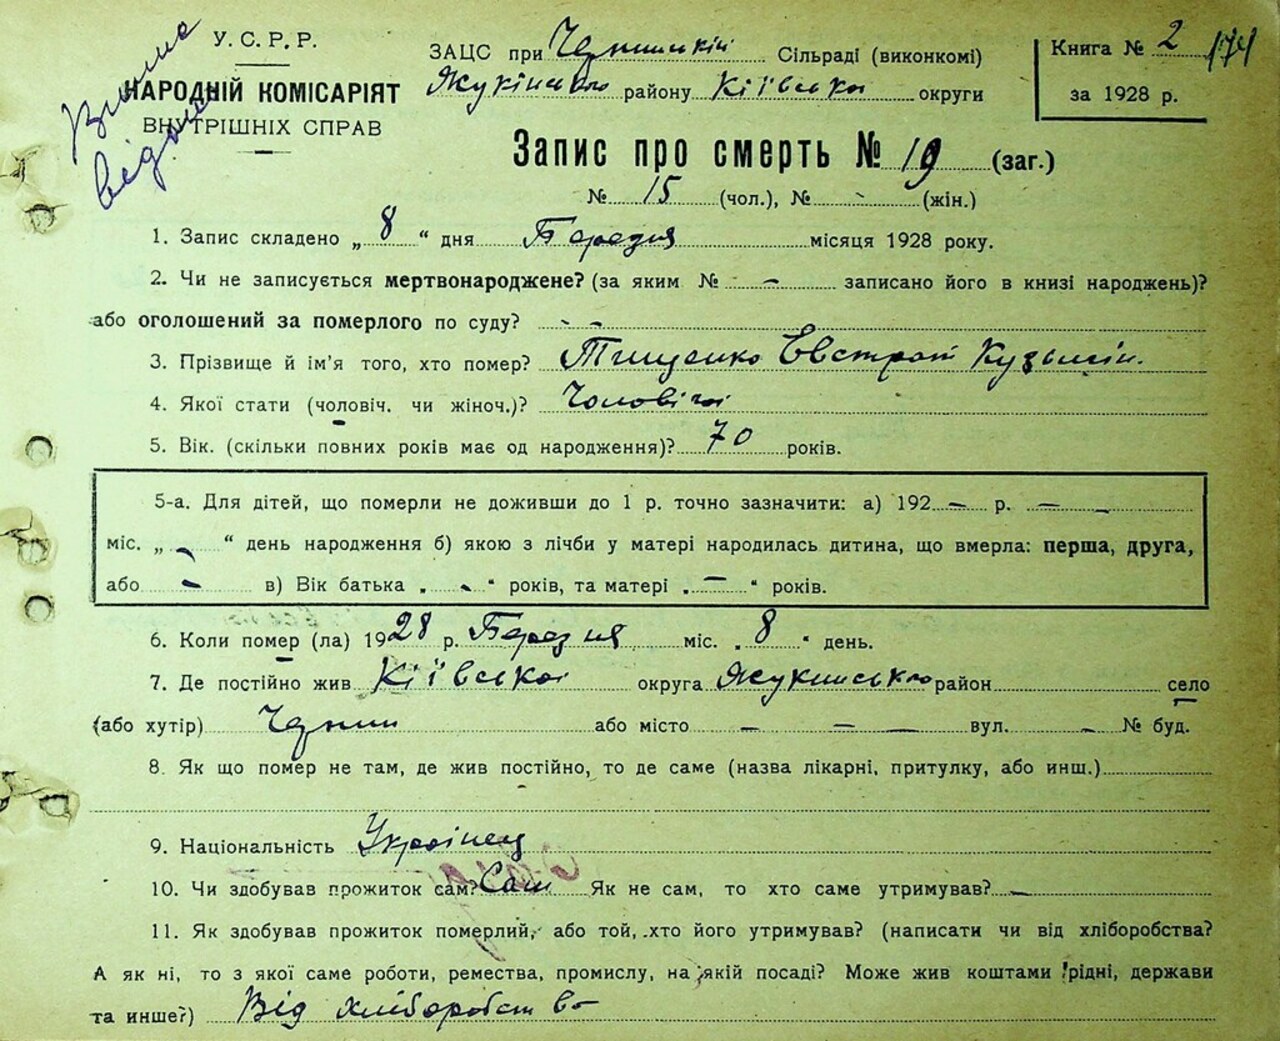 У. С. Р. Р.
НАРОДНІЙ КОМІСАРІЯТ
ВНУТРІШНІХ СПРАВ
ЗАЦС при Сільраді (виконкомі)
району Київсько округи
Книга № 2 174
за 1928 р.
Запис про смерть № 19 (заг.)
№ 15 (чол.), № - (жін.)
1. Запис складено „ 8 “ дня Березня місяця 1928 року.
2. Чи не записується мертвонароджене? (за яким № - записано його в книзі народжень)?
або оголошений за померлого по суду? - -
3. Прізвище й ім'я того, хто помер? Тищенко Евстрат Кузьмін.
4. Якої стати (чоловіч. чи жіноч.)? Чоловічої
5. Вік. (скільки повних років має од народження)? 70 років.
5-а. Для дітей, що померли не доживши до 1 р. точно зазначити: а) 192 - р. - -
міс. „ - “ день народження б) якою з лічби у матері народилась дитина, що вмерла: перша, друга,
або - в) Вік батька „ - “ років, та матері „ - “ років.
6. Коли помер (ла) 1928 р. Березня міс. „ 8 “ день.
7. Де постійно жив Київської округа район село
(або хутір) або місто - - - вул. - № буд.
8. Як що помер не там, де жив постійно, то де саме (назва лікарні, притулку, або инш.)
-
9. Національність Українець
10. Чи здобував прожиток сам? Сам Як не сам, то хто саме утримував? -
11. Як здобував прожиток померлий, або той, хто його утримував? (написати чи від хліборобства?
А як ні, то з якої саме роботи, ремества, промислу, на якій посаді? Може жив коштами рідні, держави
та инше?) Від хліборобство